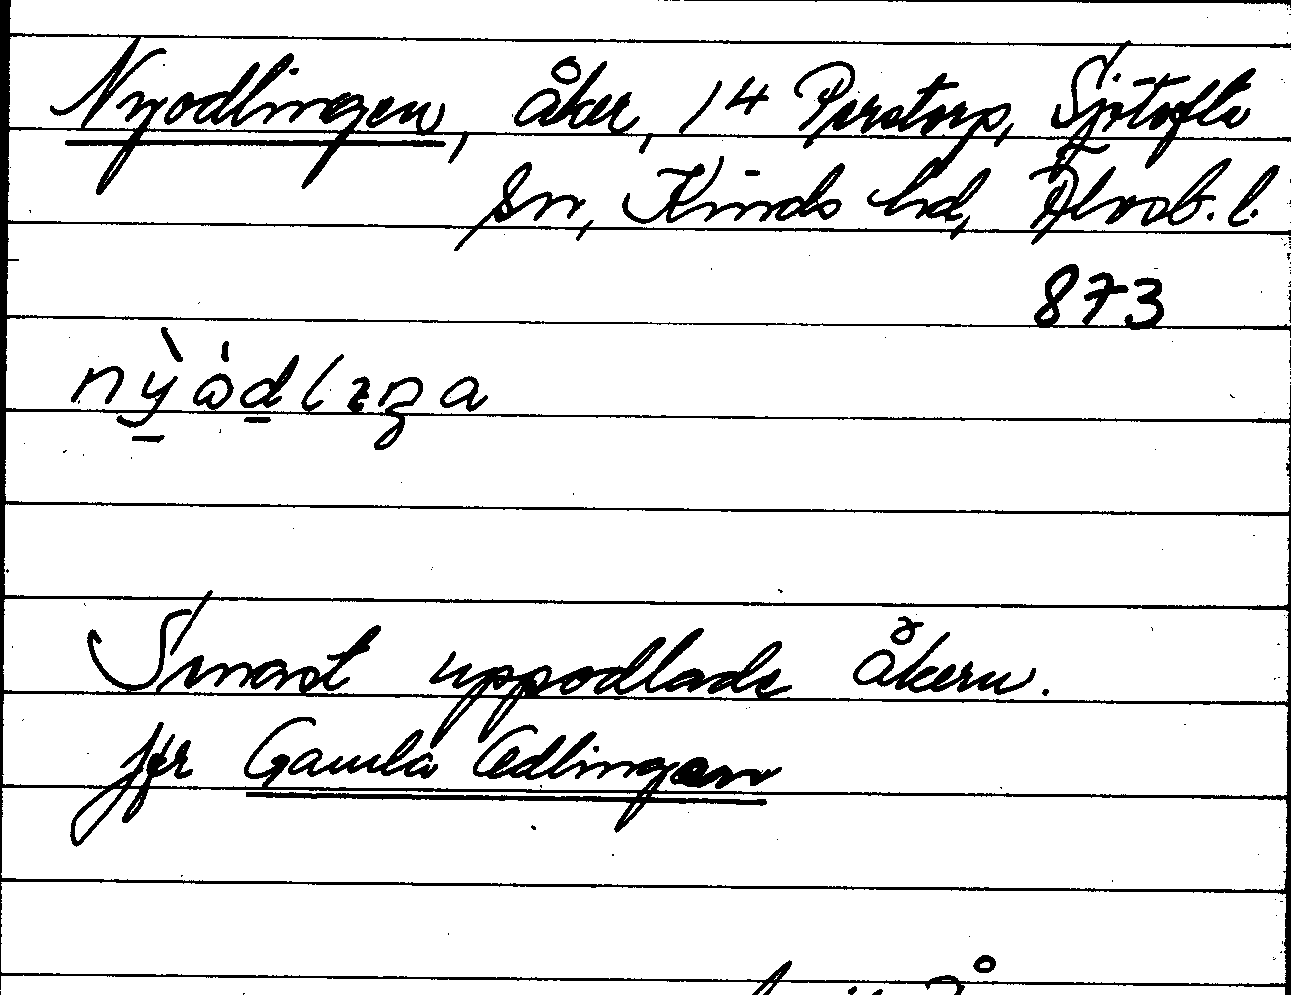 Nyodlingen, åker, 14 Perstorp, Sjötofta
sn, Kinds hd, Älvsb. l.
873
Senast uppodlade åkern.
Jfr Gamla Odlingen